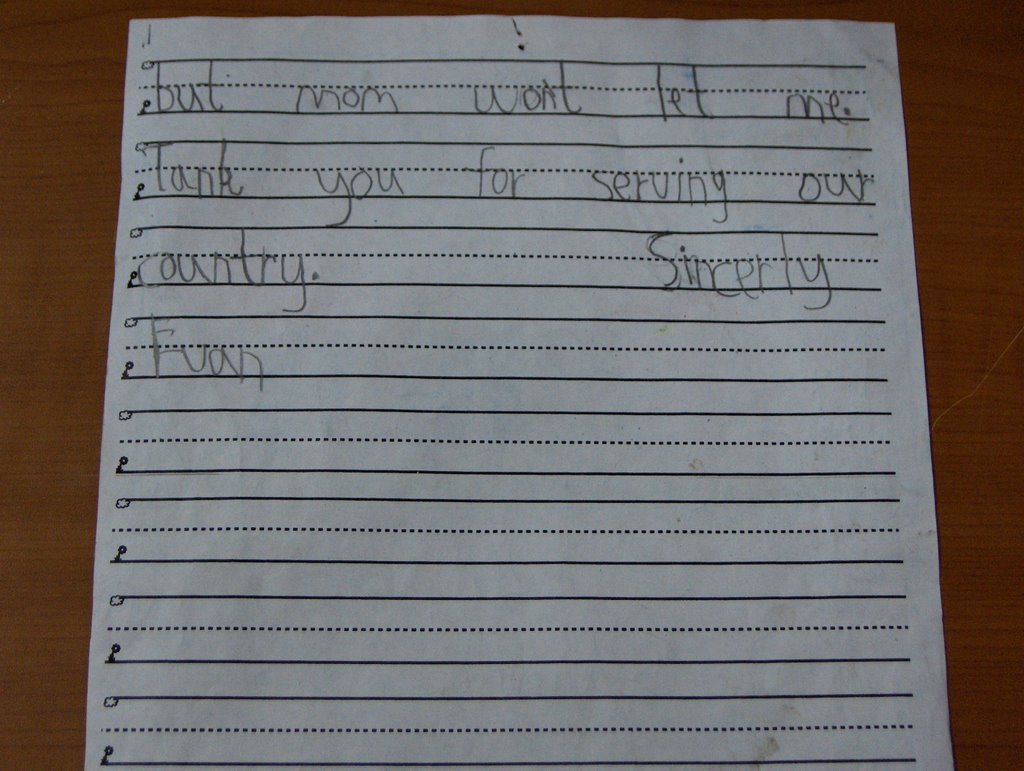 but mom wont let me.
Tank you for serving our
country. Sincerly
Evan